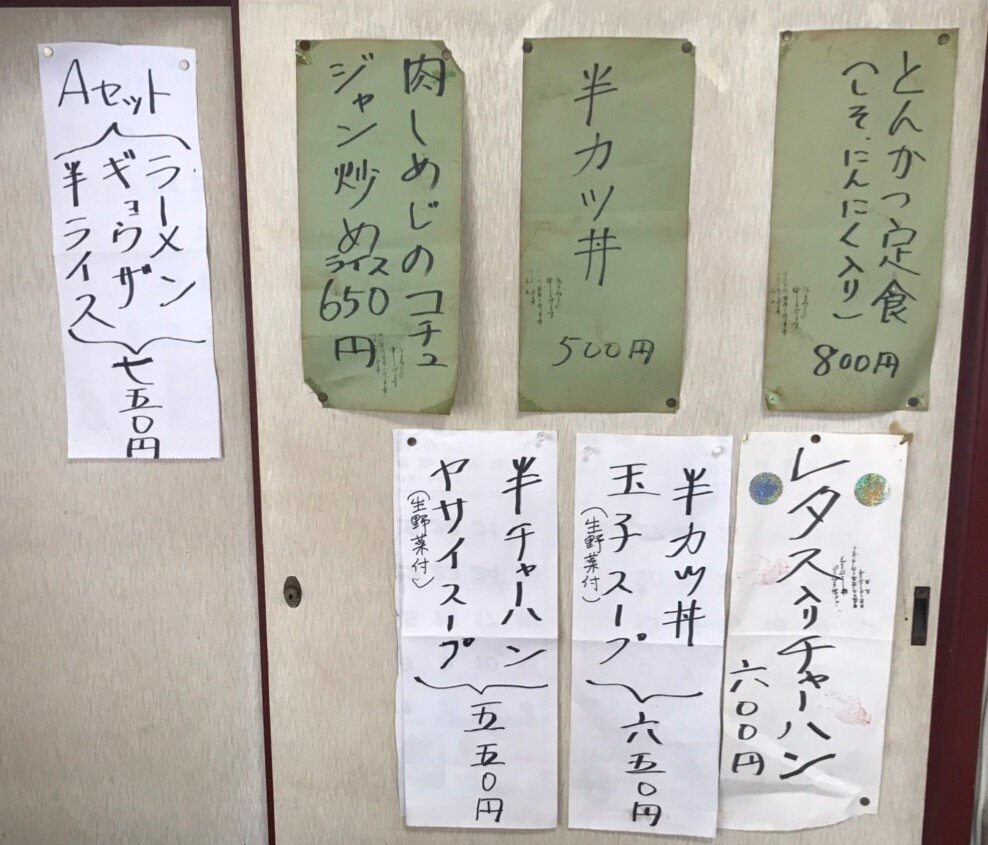 とんかつ定食
(しそ、にんにく入り)
800円
半カツ丼
500円
肉しめじのコチュ
ジャン炒め
ライス
650円
Aセット
ラーメン
ギョウザ
半ライス
七五〇円
レタス入りチャーハン
六〇〇円
半カツ丼
玉子スープ
(生野菜付)
六五〇円
半チャーハン
ヤサイスープ
(生野菜付)
五五〇円